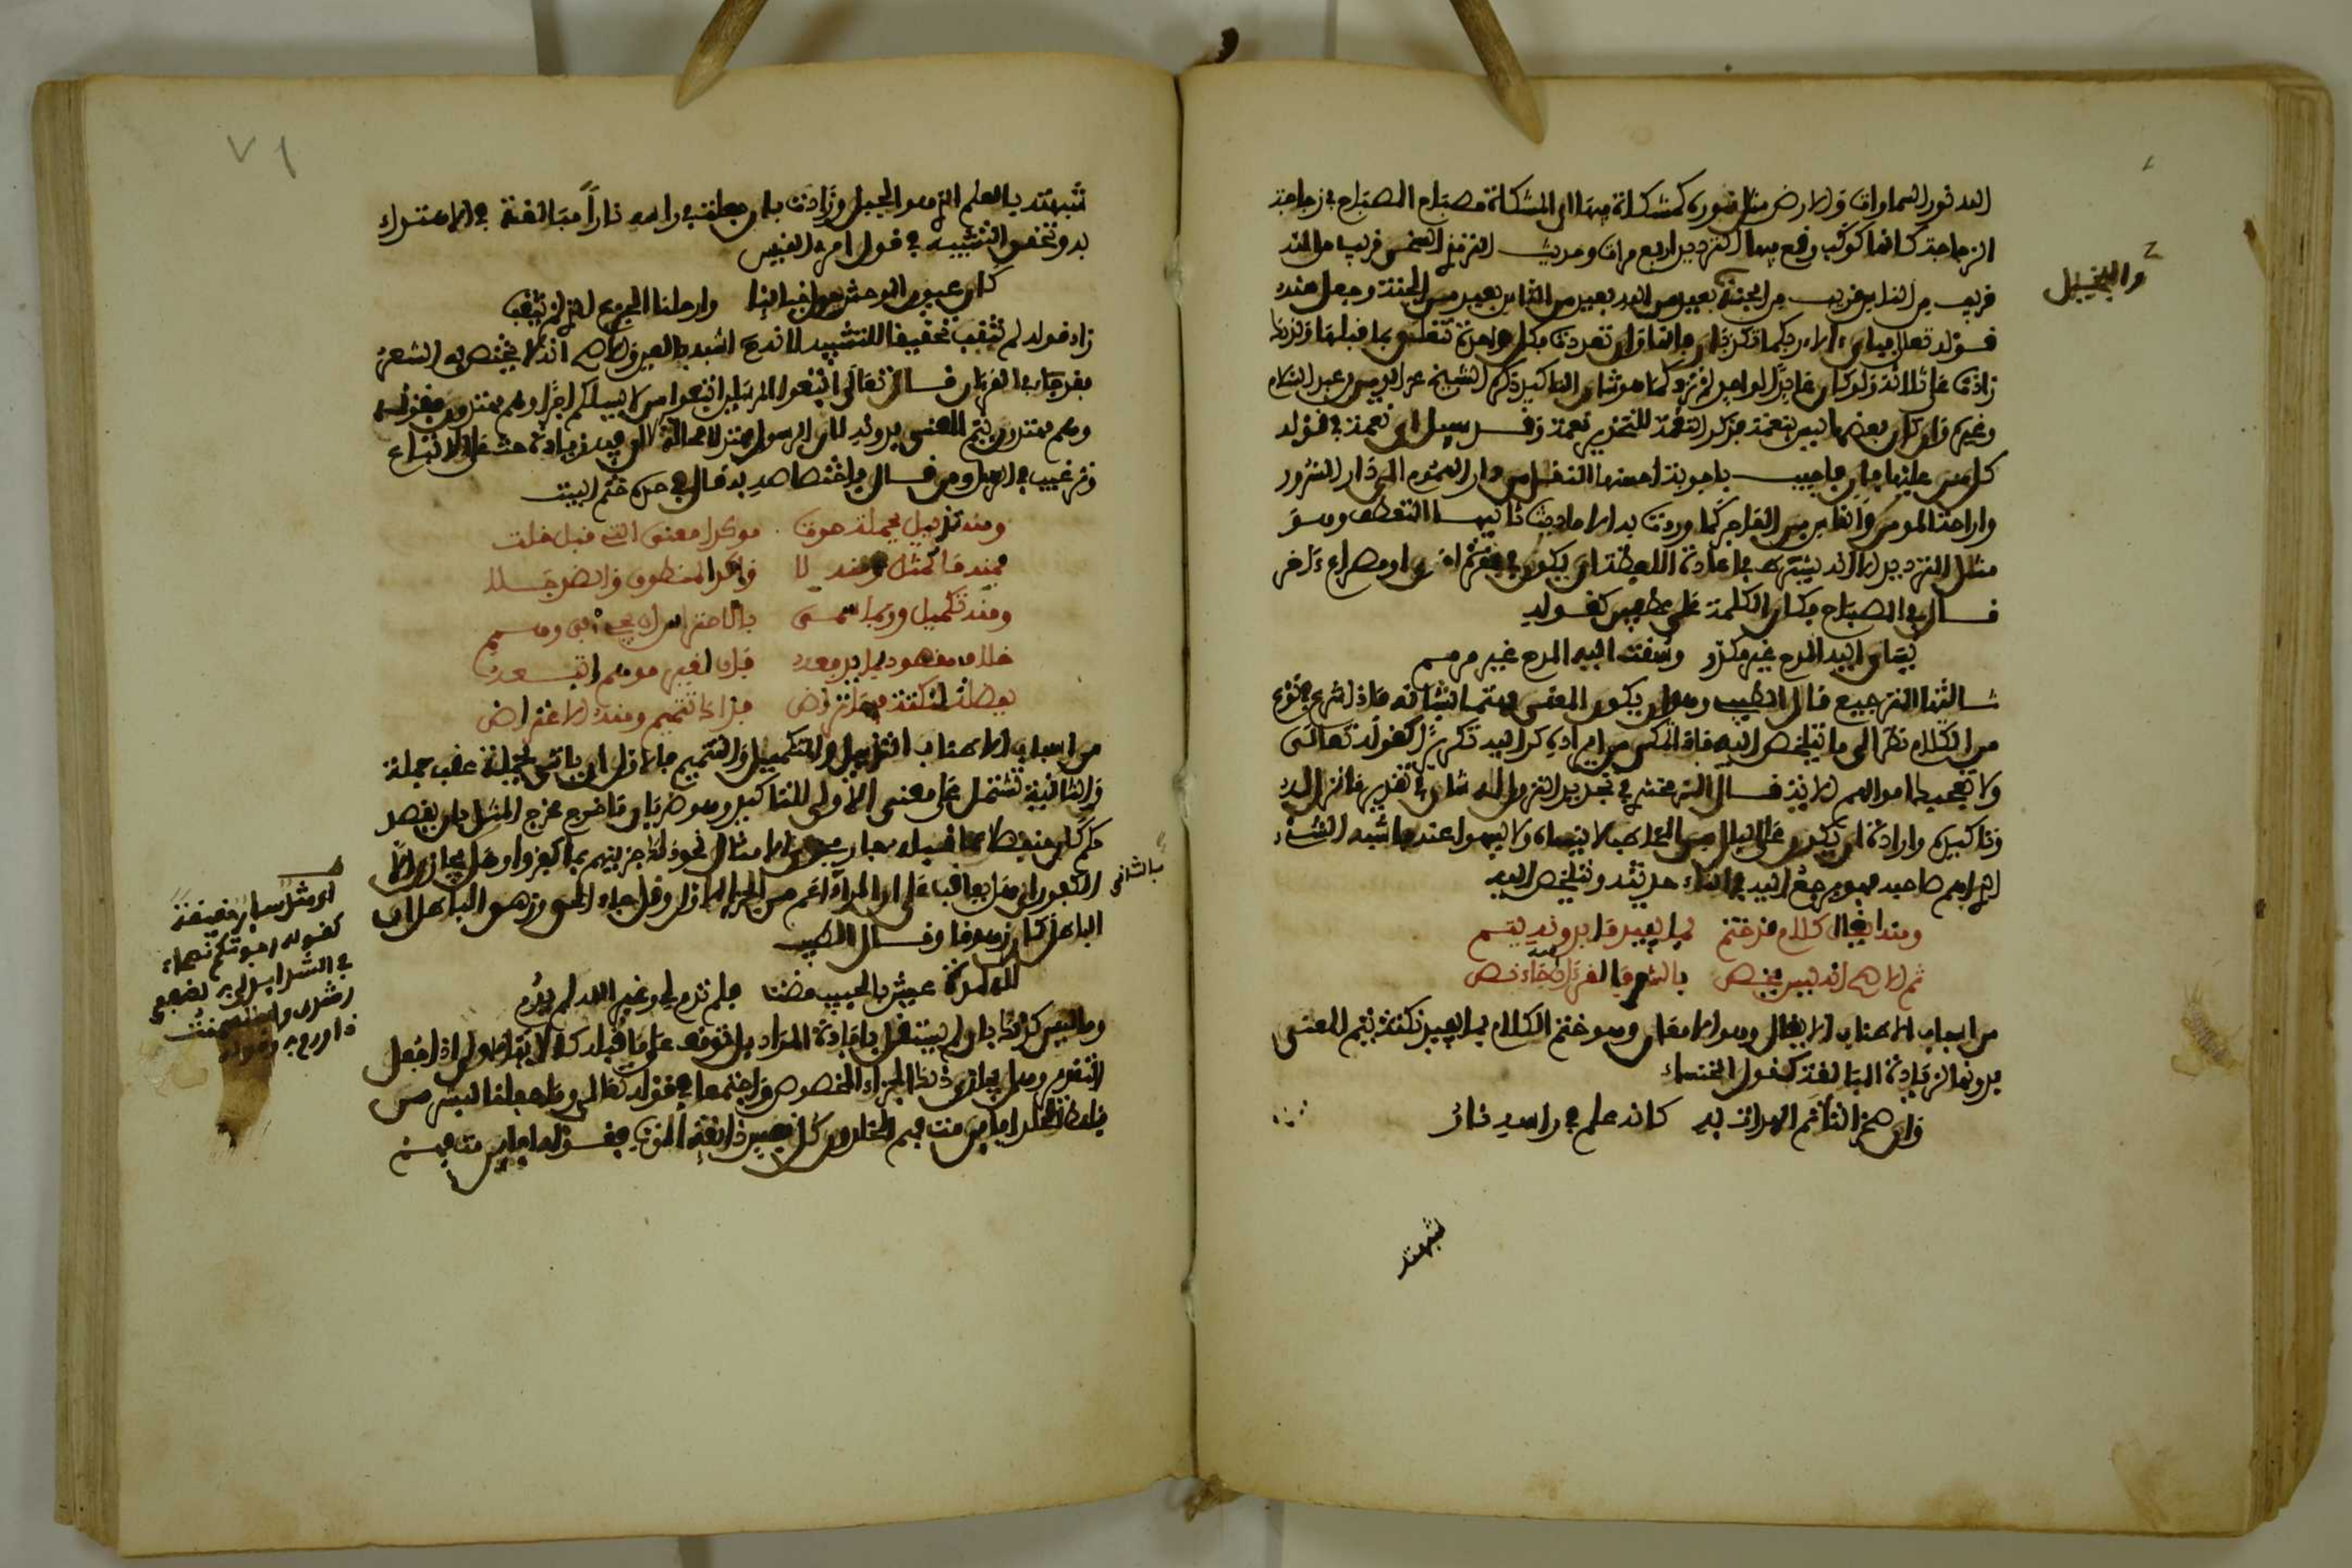 الله نور السماوات والارض مثل نوره كمشكاة فيها مصباح المصباح في زجاجة
الزجاجة كانها كوكب وقع فيها الترديد اربع مرات وحديث الترمذي السخي قريب من الله
قريب من الناس قريب من الجنة بعيد من النار بعيد من الجنة وجعل منه
والبخيل
قوله تعلى فباي ءالاء ربكما تكذبان فانها وان تعددت فكل واحدة تتعلق بما قبلها ولذلك
زادت على ثلاثة ولو كان عائدا لواحد لم تزد كما هو شان التاكيد ذكره الشيخ عز الدين بن عبد السلام
وغيره وان كان بعضها ليس بنعمة فذكر النقمة للتحذير نعمة وقد سيل اي نعمة في قوله
كل من عليها فان فاجيب باجوبة احسنها النقل من دار الهموم الى دار السرور
واراحة المومن والناس من الفاجر كما وردت به الاحاديث ثانيها التعطف وهو
مثل الترديد الا انه يشترط في اعادة اللفظة ان يكون في فقرة اخرى او مصراع ءاخر
قال في المصباح فكان الكلمة على عطفين كقوله
يساق اليه المدح غير مكرر وسقت اليه المدح غير مذمم
ثالثها الترجيع قال الطيبي وهو ان يكون المعنى مهتما بشانه فاذا شرع في نوع
من الكلام نظر الى ما يتخلص اليه فاذا تمكن من ايراده كر اليه كقوله تعالى
ولا تعجبك اموالهم الاية قال الزمخشري في تجديد النزول له شان في تقرير ما نزل له
وتاكيده وارادة ان يكون على بال من المخاطب لا ينساه ولا يسهوا عنه فاشبه الشيء
الذي اهم صاحبه فهو يرجع اليه في اثناء حديثه ويتخلص اليه
ومنه ايغال كلام قد ختم لما يفيد ما بدونه يتم
ثم الاصح انه ليس يخص بالشعر فالقرءان فيه جاء نص
من اسباب الاطناب الايغال وهو الامعان وهو ختم الكلام بما يفيد نكتة يتم المعنى
بدونها لزيادة المبالغة كقول الخنساء
وان صخرا لتاتم الهداة به كانه علم في راسه نار
شبهته
٧١
شبهته بالعلم الذي هو الجبل وزادت بان جعلت في راسه نارا مبالغة في الاهتداء
به وتحقق التشبيه في قول امرئ القيس
كان عيون الوحش حول خبائنا وارحلنا الجزع الذي لم يثقب
زاد قوله لم يثقب تحقيقا للتشبيه لانه اشبه بالعين والاصح انه لا يختص به الشعر
فقد جاء في القرءان قال تعالى اتبعوا المرسلين اتبعوا من لا يسلكم اجرا وهم مهتدون فقوله
وهم مهتدون يتم المعنى بدونه لان الرسول مهتد لا محالة لكن فيه زيادة حث على الاتباع
وترغيب في الرسل ومن قال باختصاصه به قال في حده ختم البيت
ومنه تذييل بجملة حوت موكدا معنى التي قبل خلت
فمنه ما كمثل ومنه لا واكد المنطوق والضد جلا
ومنه تكميل وربما سمي بالاحتراس ان يجي وهم
خلاف مقصود بما به يعد فان لغير موهم اتت
بفضلة لنكتة فيما ارتضي فذاك تتميم ومنه الاعتراض
من اسباب الاطناب التذييل والتكميل والتتميم فالاول ان ياتي بجملة عقب جملة
والثانية تشتمل على معنى الاولى للتاكيد وهو ضربان ما خرج مخرج المثل بان يقصد
حكم كلي منفصل عما قبله جار مجرى الامثال نحو ذلك جزيناهم بما كفروا وهل يجازى الا
الكفور اي هل يعاقب على ان المراد اعم من الجزاء الاول وقل جاء الحق وزهق الباطل ان
بالثاني
الباطل كان زهوقا وقال الطيبي
لله لذة عيش بالحبيب مضت فلم تدم لي وغير الله لم يدم
وما ليس كذلك بان لم يستقل بافادة المراد بل توقف على ما قبله كالاية الاولى اذا جعل
التقدير وهل يجازى ذلك الجزاء المخصوص واجتمعا في قوله تعالى وما جعلنا لبشر من
قبلك الخلد افاين مت فهم الخالدون كل نفس ذائقة الموت فقوله افاين مت فهم
اي مثل
كقوله
في الشرا